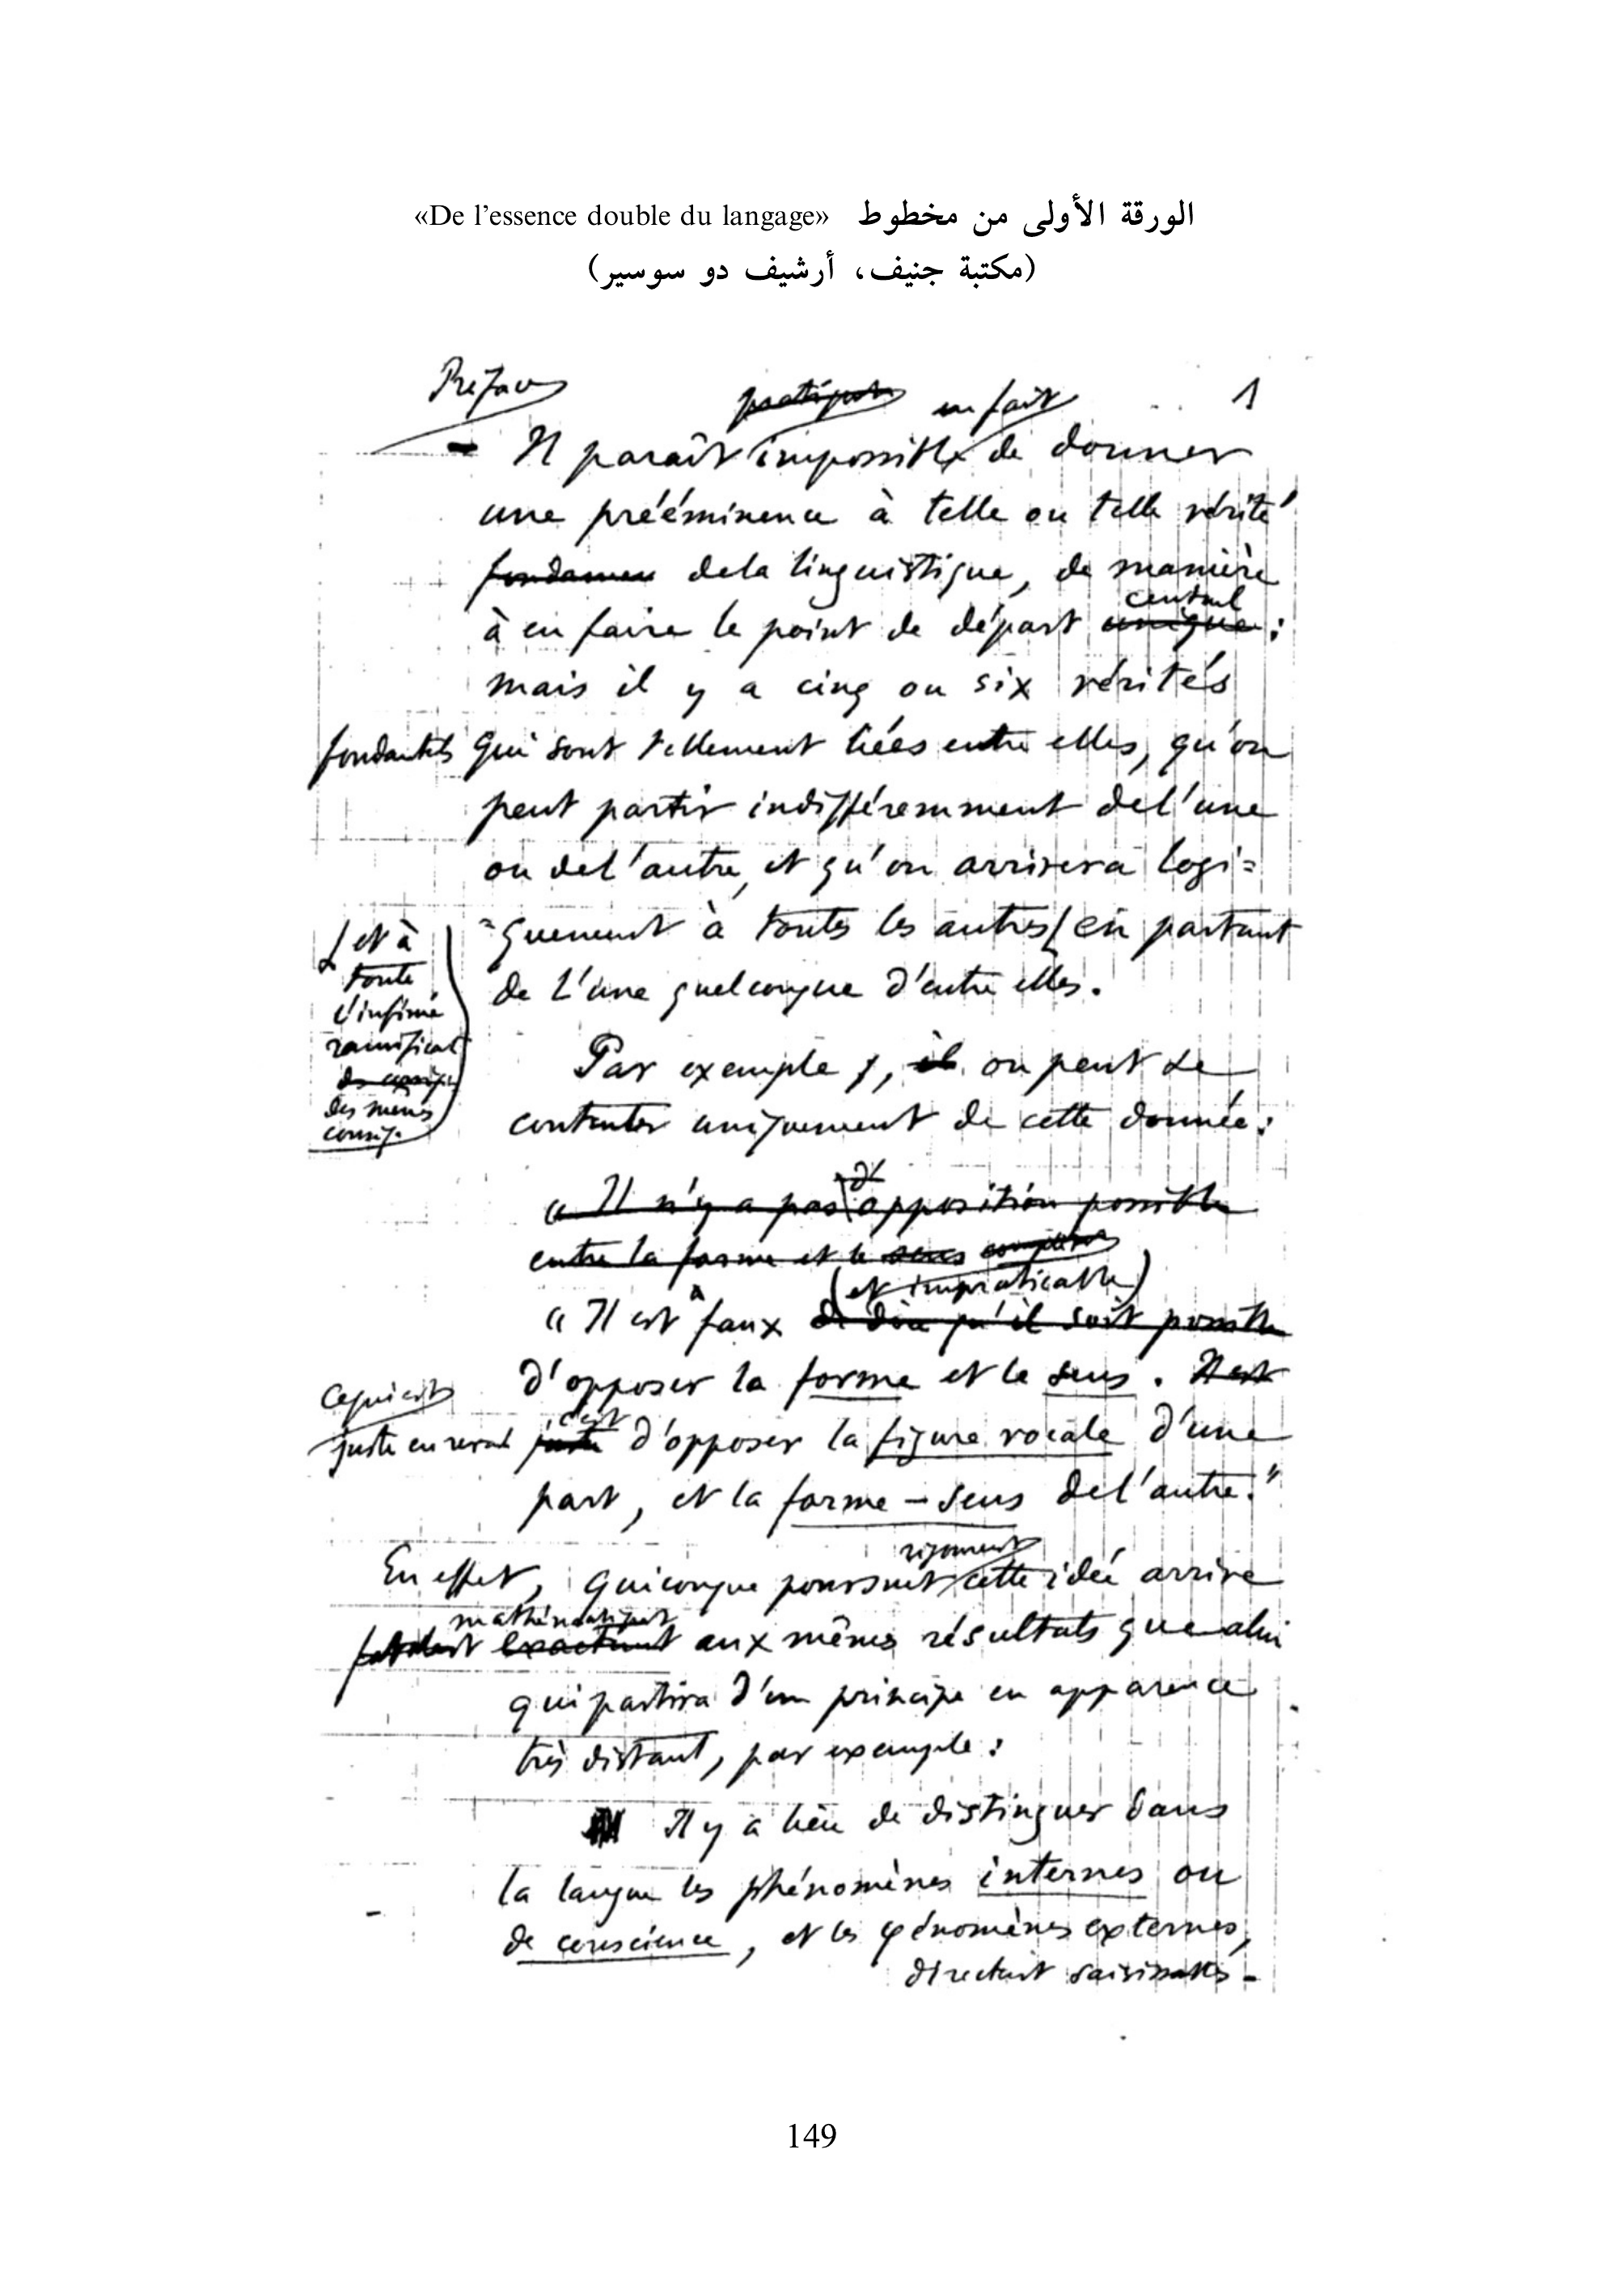 الورقة الأولى من مخطوط «De l'essence double du langage»
(مكتبة جنيف، أرشيف دو سوسير)
Préface
en fait
1
– Il paraît impossible de donner
une prééminence à telle ou telle vérité
fondamen de la linguistique, de manière
central
à en faire le point de départ unique :
mais il y a cinq ou six vérités
fondamtles qui sont tellement liées entre elles, qu'on
peut partir indifféremment de l'une
ou de l'autre, et qu'on arrivera logi=
=quement à toutes les autres en partant
de l'une quelconque d'entre elles.
et à
toute
l'infime
ramificat
des mêmes
conséq.
Par exemple, il on peut se
contenter uniquement de cette donnée :
d'
« Il n'y a pas opposition possible
entre la forme et le sens
(et impraticable)
« Il est faux de dire qu'il soit possible
d'opposer la forme et le sens. Il est
Ce qui est
juste en revan
c'est
juste d'opposer la figure vocale d'une
part, et la forme–sens de l'autre."
rigourt
En effet, quiconque poursuit cette idée arrive
mathématiqut
exactement aux mêmes résultats que celui
qui partira d'un principe en apparence
très distant, par exemple :
Il y a lieu de distinguer dans
la langue les phénomènes internes ou
de conscience, et les phénomènes externes,
directmt saisissables –
149